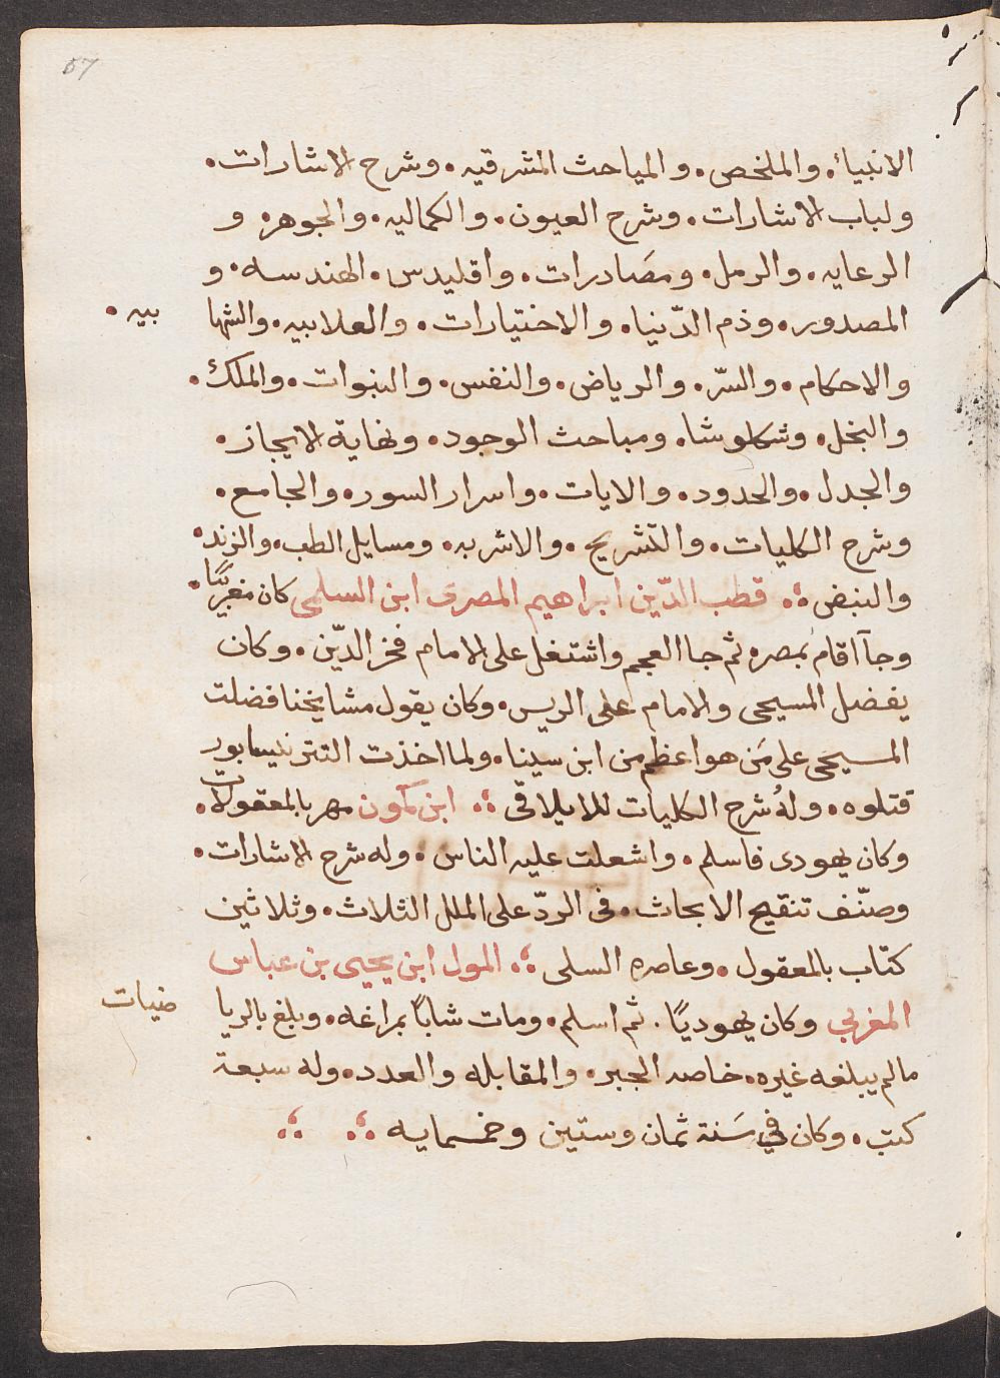 57
الانبياء. والملخص. والمباحث المشرقيه. وشرح الاشارات.
ولباب الاشارات. وشرح العيون. والكماليه. والجوهر. و
الرعايه. والرمل. ومصَادرات. واقليدس. الهندسه. و
المصدور. وذم الدّنيا. والاختيارات. والعلابيه. والشها بيه.
والاحكام. والسّر. والرياض. والنفس. والنبوات. والملك.
والبخل. وشكلوشا. ومباحث الوجود. ونهاية الايجاز.
والجدل. والحدود. والايات. واسرار السور. والجامع.
وشرح الكليات. والتشريح. والاشربه. ومسايل الطب. والزند.
والنبض ؞ قطب الدّين ابراهيم المصرى ابن السلمى كان مغربيًا.
وجآ اقام بمصره ثم جا العجم واشتغل على الامام فخر الدّين. وكان
يفضل المسيحى والامام على الريس. وكان يقول مشايخنا فضلت
المسيحى على مَن هو اعظم من ابن سينا. ولما اخذت التتر نيسابور
قتلوه. ولهُ شرح الكليات للايلاقى ؞ ابن كمون مهر بالمعقولات.
وكان يهودى فاسلم. واشعلت عليه الناس. وله شرح الاشارات.
وصنّف تنقيح الابحاث. فى الردّ على الملل الثلاث. وثلاثين
كتاب بالمعقول. وعاصره السلى ؞ المول ابن يحيى بن عباس
المغربي وكان يهوديًا. ثم اسلم. ومات شابًا بمراغه. وبلغ بالريا ضيات
مالم يبلغه غيره. خاصه الجبر. والمقابله والعدد. وله سبعة
كتب. وكان في سَنة ثمان وستين وخمسمايه ؞ ؞